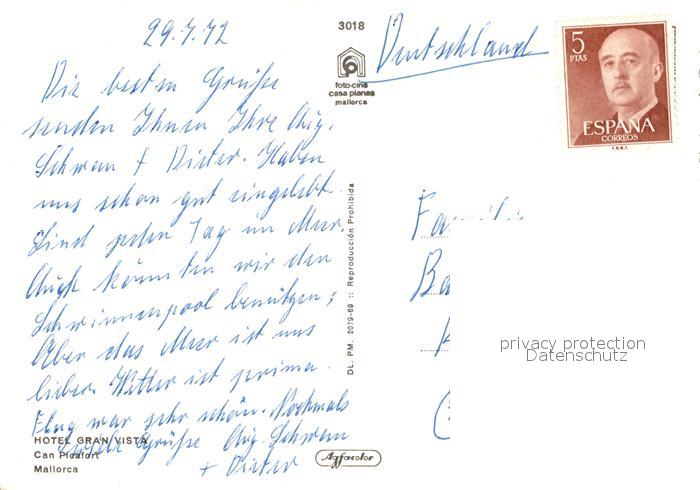 29.7.72
Die besten Grüße
senden Ihnen Ihre Aug.
Schwan + Dieter. Haben
uns schon gut eingelebt.
Sind jeden Tag im Meer.
Auch könnten wir den
Schwimmenpool benützen;
Aber das Meer ist uns
lieber. Wetter ist prima.
Flug war sehr schön. Nochmals
Grüße Aug. Schwan
+ Dieter
HOTEL GRAN VISTA
Can Picafort
Mallorca
3018
foto-cine
casa planas
mallorca
DL. PM. 2079-69 :: Reproducción Prohibida
Agfacolor
Deutschland
5
PTAS
ESPAÑA
CORREOS
F.N.M.T.
Famili
Ba
privacy protection
Datenschutz